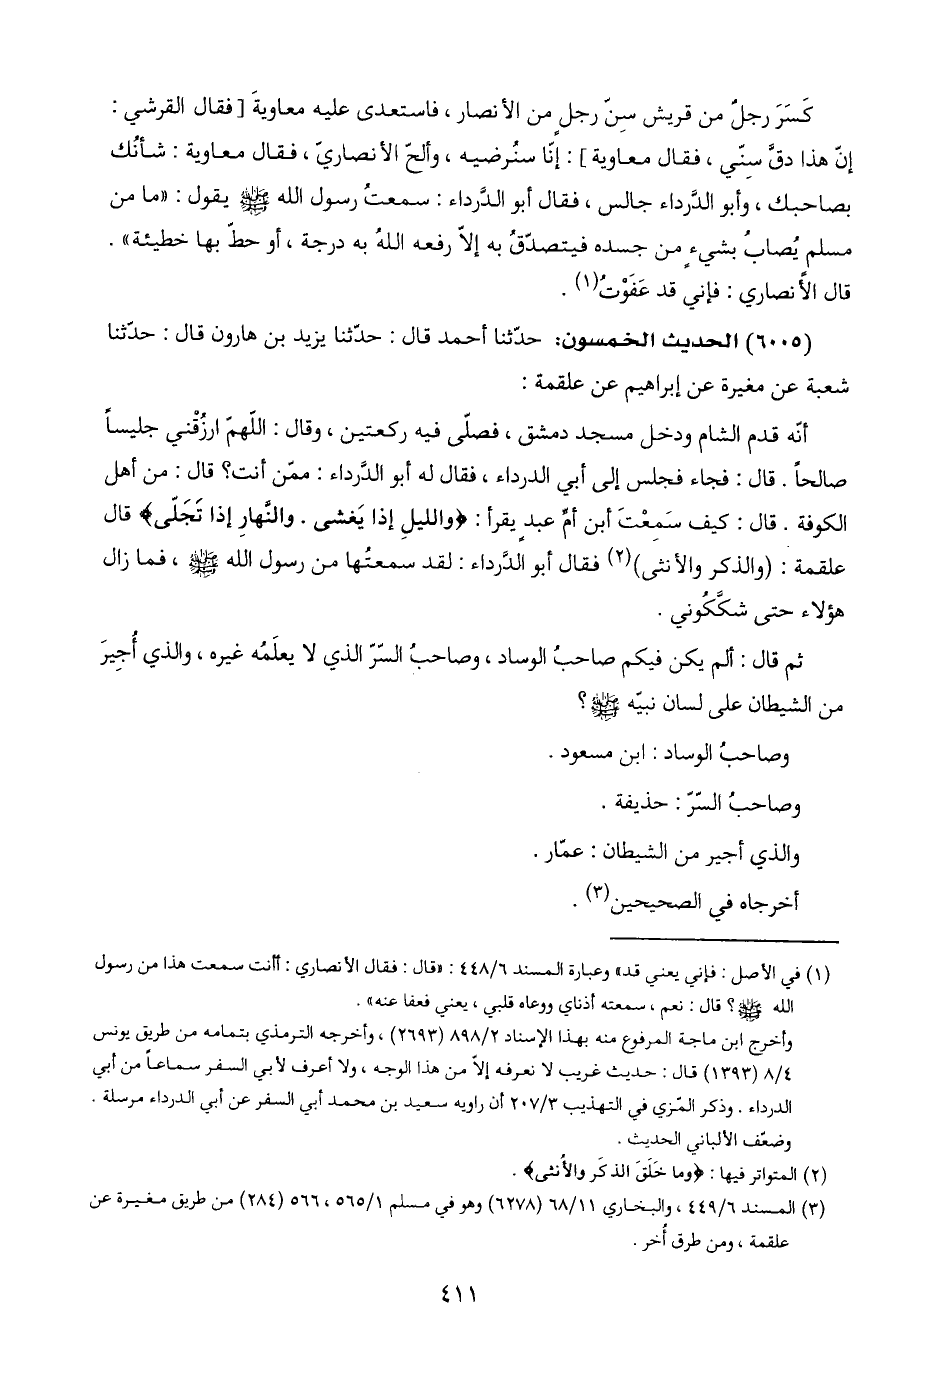 كَسَرَ رجلٌ من قريش سِنّ رجلٍ من الأنصار ، فاستعدى عليه معاويةَ [ فقال القرشي :
إنّ هذا دقَّ سِنّي ، فقال معاوية ] : إنّا سنُرضيه ، وألحّ الأنصاريّ ، فقال معاوية : شأنُك
بصاحبك ، وأبو الدَّرداء جالس ، فقال أبو الدَّرداء : سمعتُ رسول الله ﷺ يقول : «ما من
مسلم يُصابُ بشيءٍ من جسده فيتصدّقُ به إلاّ رفعه اللهُ به درجة ، أو حطّ بها خطيئة» .
قال الأنصاري : فإني قد عَفَوْتُ(١) .
(٦٠٠٥) الحديث الخمسون: حدّثنا أحمد قال : حدّثنا يزيد بن هارون قال : حدّثنا
شعبة عن مغيرة عن إبراهيم عن علقمة :
أنّه قدم الشام ودخل مسجد دمشق ، فصلّى فيه ركعتين ، وقال : اللّهمّ ارزُقْني جليساً
صالحاً . قال : فجاء فجلس إلى أبي الدرداء ، فقال له أبو الدَّرداء : ممّن أنت؟ قال : من أهل
الكوفة . قال : كيف سَمِعْتَ ابن أمِّ عبدٍ يقرأ : ﴿والليلِ إذا يَغشى . والنَّهارِ إذا تَجَلّى﴾ قال
علقمة : (والذكر والأنثى)(٢) فقال أبو الدَّرداء : لقد سمعتُها من رسول الله ﷺ ، فما زال
هؤلاء حتى شكَّكُوني .
ثم قال : ألم يكن فيكم صاحبُ الوساد ، وصاحبُ السّرّ الذي لا يعلَمُه غيره ، والذي أُجيرَ
من الشيطان على لسان نبيّه ﷺ ؟
وصاحبُ الوساد : ابن مسعود .
وصاحبُ السّرّ : حذيفة .
والذي أجير من الشيطان : عمّار .
أخرجاه في الصحيحين(٣) .
(١) في الأصل : فإني يعني قد» وعبارة المسند ٤٤٨/٦ : «قال : فقال الأنصاري : أأنت سمعت هذا من رسول
الله ﷺ ؟ قال : نعم ، سمعته أذناي ووعاه قلبي ، يعني فعفا عنه» .
وأخرج ابن ماجة المرفوع منه بهذا الإسناد ٨٩٨/٢ (٢٦٩٣) ، وأخرجه الترمذي بتمامه من طريق يونس
٨/٤ (١٣٩٣) قال : حديث غريب لا نعرفه إلاّ من هذا الوجه ، ولا أعرف لأبي السفر سماعاً من أبي
الدرداء . وذكر المّزي في التهذيب ٢٠٧/٣ أن راويه سعيد بن محمد أبي السفر عن أبي الدرداء مرسلة .
وضعّف الألباني الحديث .
(٢) المتواتر فيها : ﴿وما خَلَقَ الذكَر والأُنثى﴾ .
(٣) المسند ٤٤٩/٦ ، والبخاري ٦٨/١١ (٦٢٧٨) وهو في مسلم ٥٦٥/١ ، ٥٦٦ (٢٨٤) من طريق مغيرة عن
علقمة ، ومن طرق أُخر .
٤١١